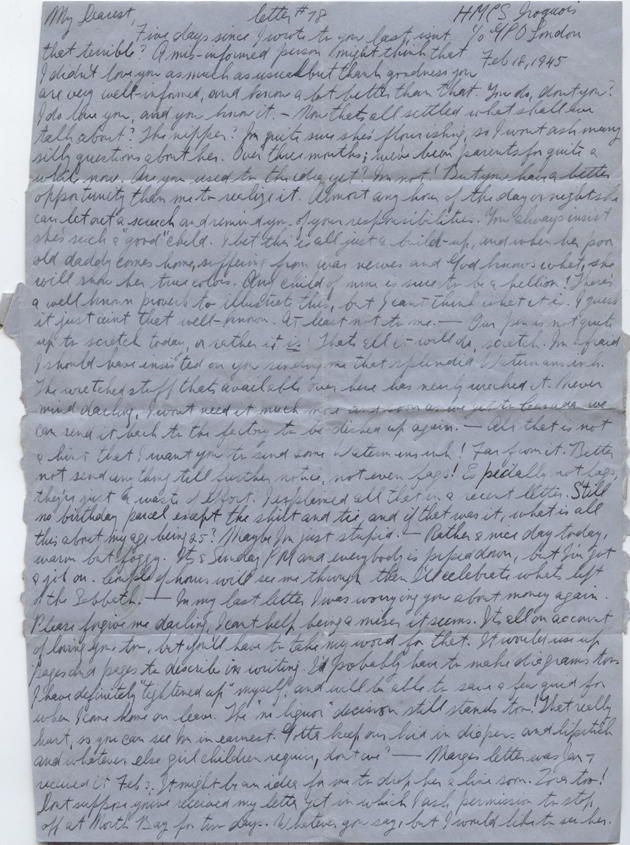 My Dearest, letter # 78 HMCS Iroquois
Five days since I wrote to you last, isnt c/o GPO London
that terrible? A mis-informed person might think that Feb 18, 1945
I didn't love you as much as usual but thank goodness you
are very well-informed, and know a lot better than that. You do, don't you?
I do love you, and you know it. — Now thats all settled what shall we
talk about? The nipper? I'm quite sure she's flourishing, so I wont ask many
silly questions about her. Over three months; we've been parents for quite a
while now. Are you used to the idea yet? I'm not! But you have a better
opportunity than me to realize it. Almost any hour of the day or night she
can let out a screech and remind you of your responsibilities. You always insist
she's such a "good" child. I bet this is all just a build-up, and when her poor
old daddy comes home, suffering from war nerves and God knows what, she
will show her true colors. Any child of mine is sure to be a hellion! There's
a well known proverb to illustrate this, but I cant think what it is. I guess
it just aint that well-known. At least not to me. — Our pen is not quite
up to scratch today, or rather it is! That's all it will do, scratch. I'm afraid
I should have insisted on you sending me that splendid Watermans ink.
The wretched stuff thats available over here has nearly wrecked it. Never
mind darling, I wont need it much more and soon as we get to Canada we
can send it back to the factory to be dished up again. — All that is not
a hint that I want you to send some Watermans ink! Far from it. Better
not send anything till further notice, not even fags! Especially not fags,
they're just a waste of effort. I explained all that in a recent letter. Still
no birthday parcel except the shirt and tie, and if that was it, what is all
this about my age being 25? Maybe I'm just stupid. — Rather a nice day today,
warm but foggy. It's Sunday PM and everybody is piped down, but I've got
a job on. Couple of hours will see me through then I'll celebrate whats left
of the Sabbath. — In my last letter I was worrying you about money again.
Please forgive me darling, I cant help being a miser it seems. It's all on account
of loving you too, but you'll have to take my word for that. It would use up
pages and pages to describe in writing. I'd probably have to make diagrams too.
I have definitely "tightened up" myself, and will be able to save a few quid for
when I come home on leave. The "no liquor" decision still stands too. That really
hurt, so you can see I'm in earnest. Gotta keep our kid in diapers and lipstick
and whatever else girl children require, don't we? — Marges letter was Jan 7
received it Feb . It might be an idea for me to drop her a line soon. too!
Dont suppose you've received my letter yet in which I ask permission to stop
off at North Bay for two days. Whatever you say, but I would like to see her.